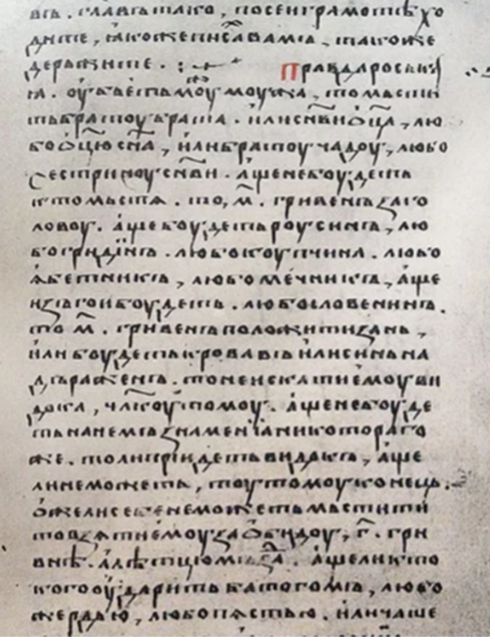 въ, глаⷡ҇ъ тако, посеи грамотѣ хо
дите, ꙗкоже писа́ва́мъ, такоже
держите.
Правда роськаꙗ
ꙗ. оубьеть моу̑ моужа, то мьсти
ть братоу брата. или сн҃ви ѡц҃а, лю
бо ѡц҃ю сн҃а, или братоу чадоу, любо
сестриноу сн҃ви. аще не боудеть
кто мьстѧ. то, м҃. гривенъ за го
ловоу. аще боудеть роусинъ, лю
бо гридинъ. любо коупчина. любо
ꙗбетникъ, любо мечникъ, аще
изъгои боудеть. любо словенинъ.
то м҃. гривенъ положити зань,
или боудеть кровавъ или синь на
дъраженъ. то не искати емоу ви
дока, чл҃коу томоу. аще не боуде
ть на немъ знаменіа никоторого
же. то ли придеть видокъ, аще
ли не можеть, тоу томоу конець.
оже ли себе не можеть мьстити
то взѧти емоу за ѡбидоу, г҃. гри
внѣ. а лѣтцю мъзⷣа. аще ли кто
кого оударить батогомъ, любо
жердью, любо пѧстью. или чаше